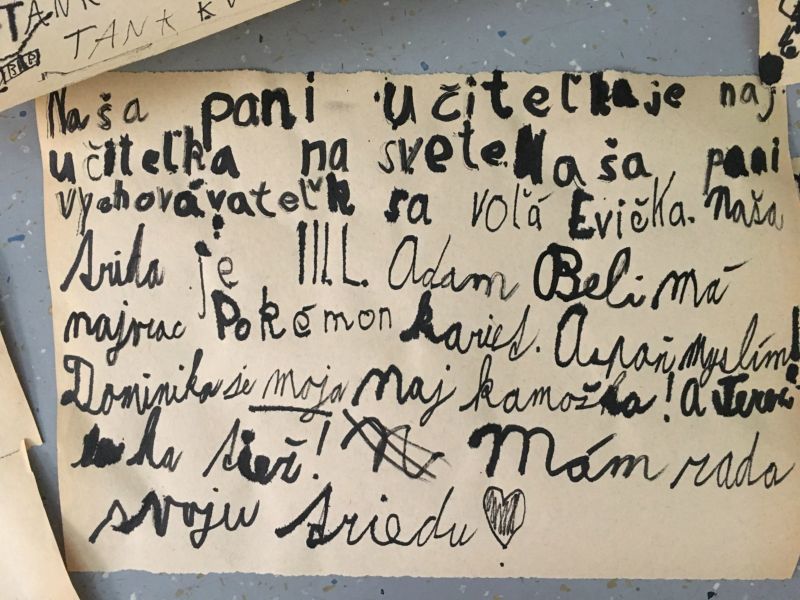 TANA K
Naša pani učiteľka je naj
učiteľka na svete Naša pani
vychovávateľk sa volá Evička. Naša
trida je III.L. Adam Beli má
najviac Pokémon kariet. Aspaň myslím!
Dominika je moja naj kamoška! A
ka tiež! Mám rada
svoju triedu